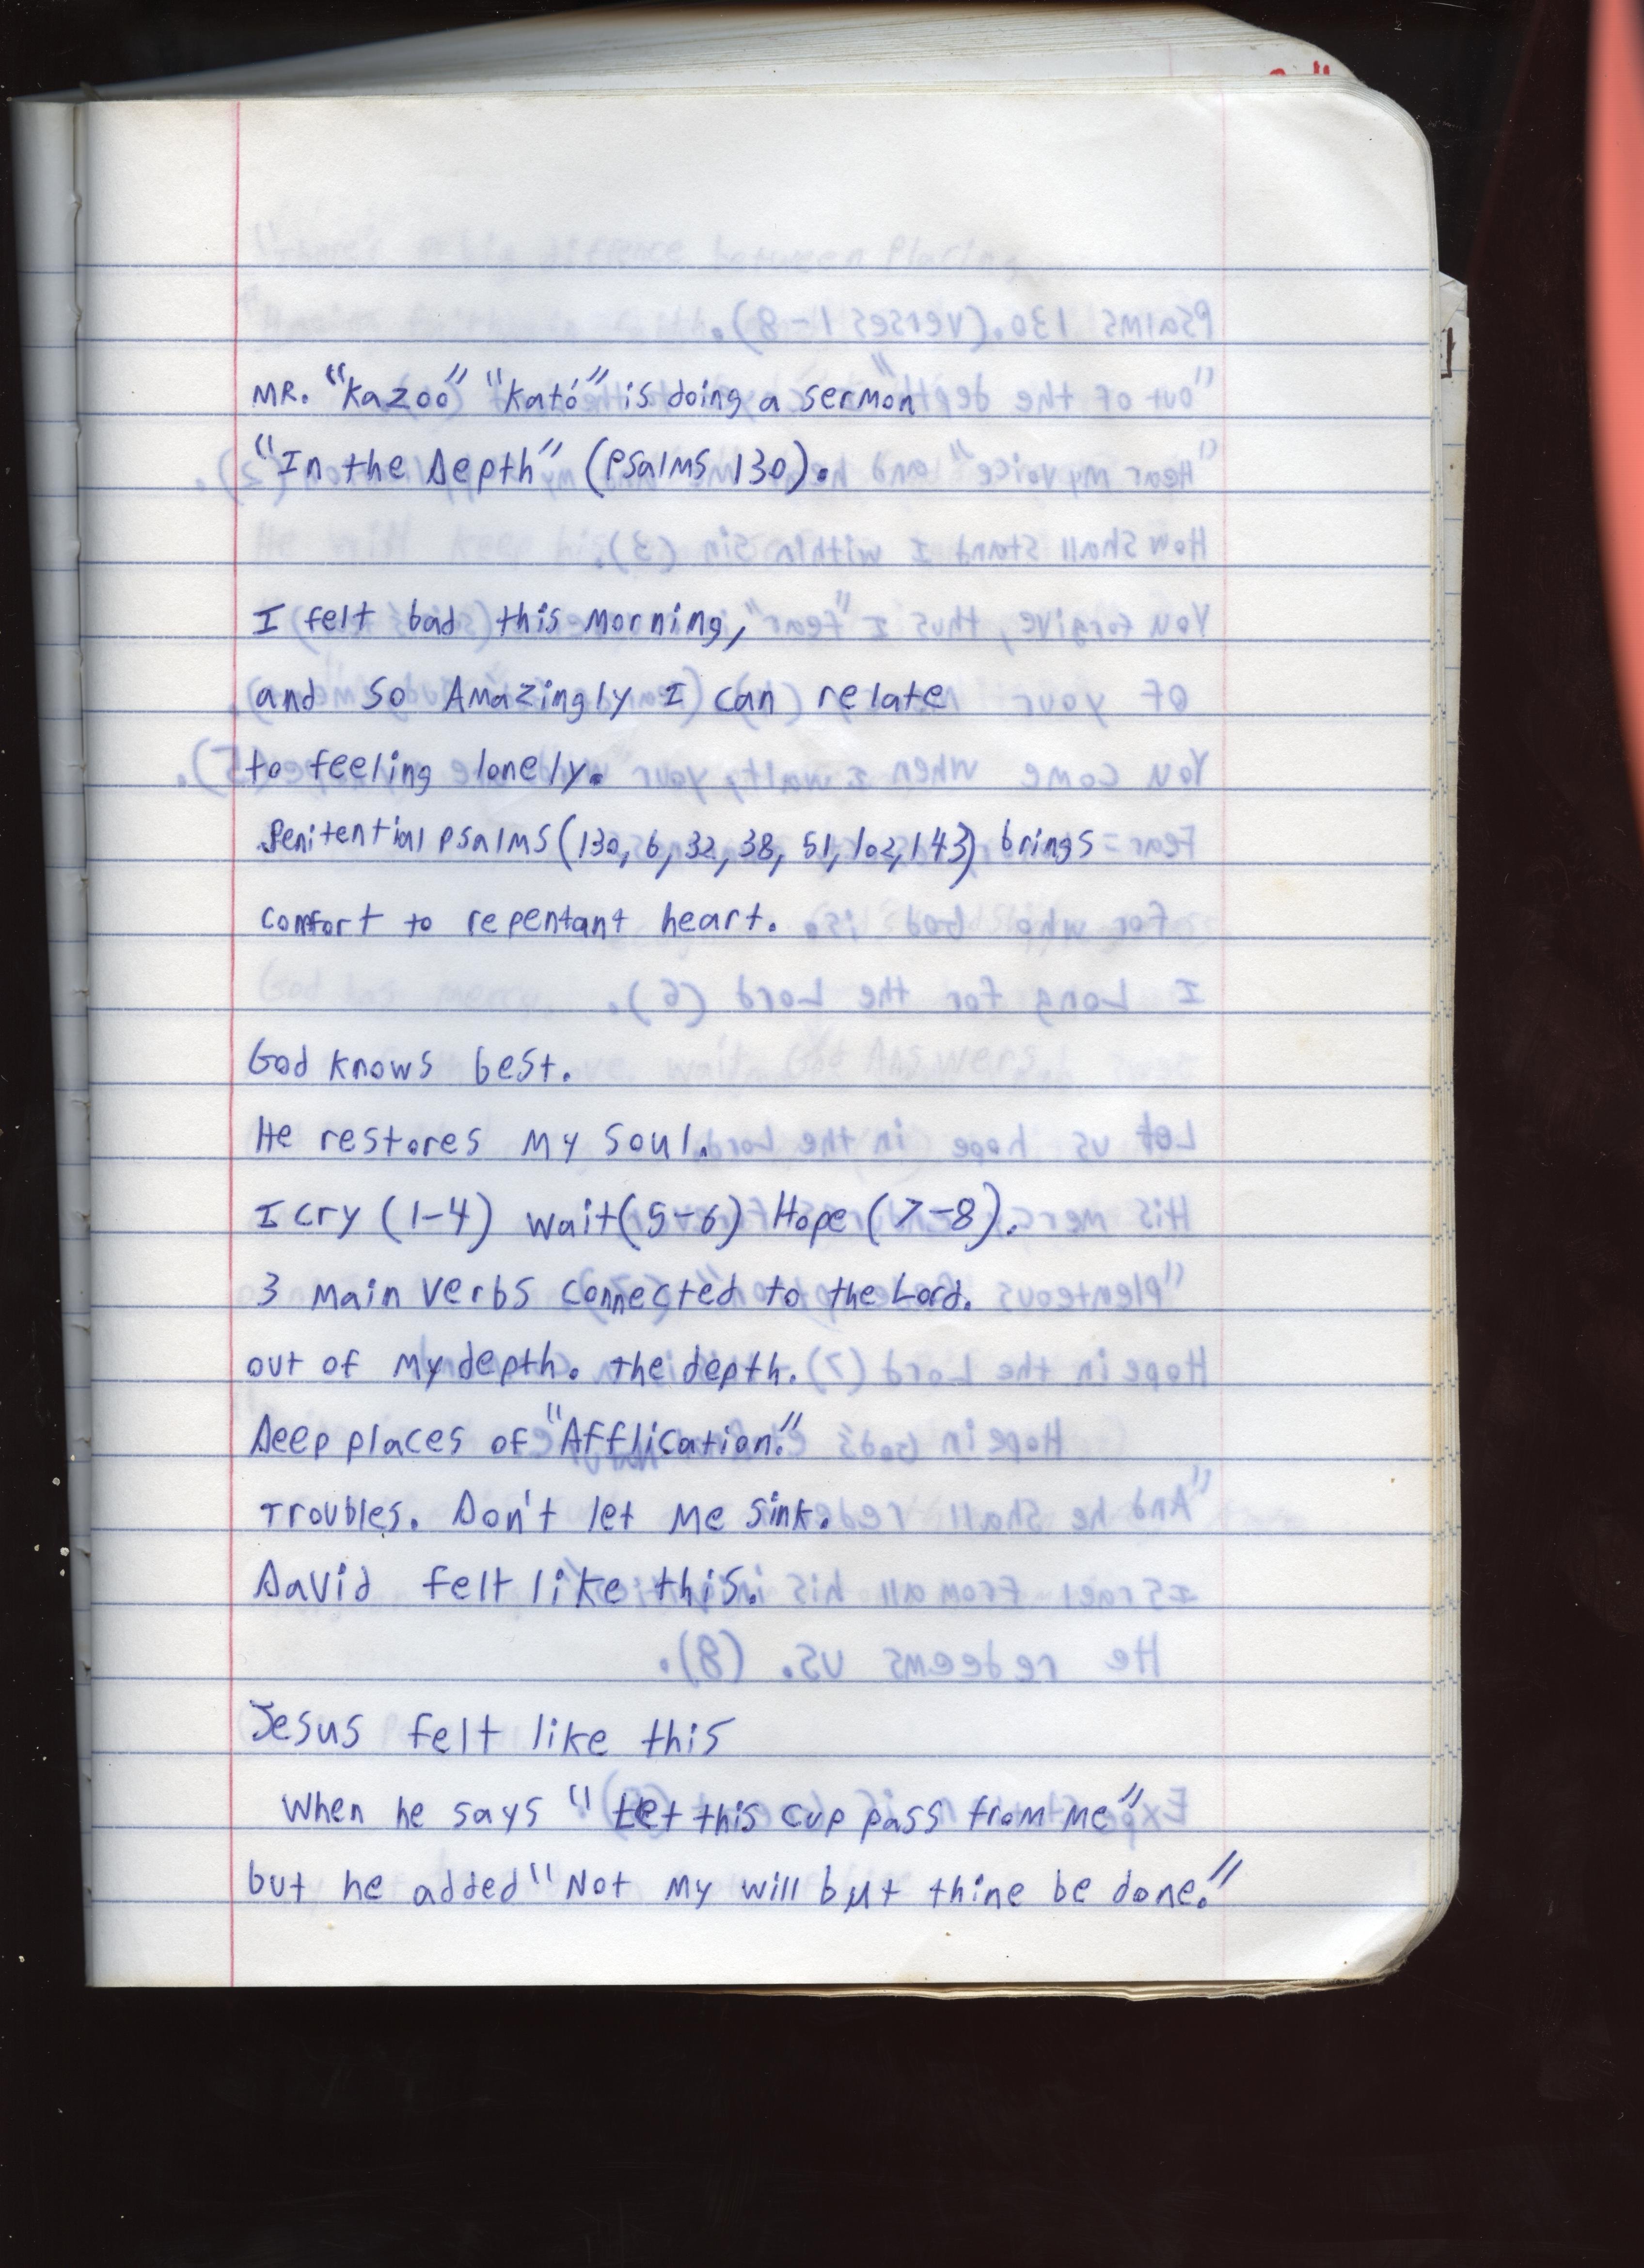 MR. "Kazoo" "Kató" is doing a sermon
"In the Depth" (Psalms 130).
I felt bad this morning,
and so Amazingly I can relate
to feeling lonely.
Penitential Psalms (130, 6, 32, 38, 51, 102, 143) brings
comfort to repentant heart.
God knows best.
He restores my soul.
I cry (1-4) wait (5-6) Hope (7-8).
3 main verbs connected to the Lord.
out of my depth. The depth.
Deep places of "Afflication."
Troubles. Don't let me sink.
David felt like this.
Jesus felt like this
When he says "Let this cup pass from me"
but he added "Not my will but thine be done."